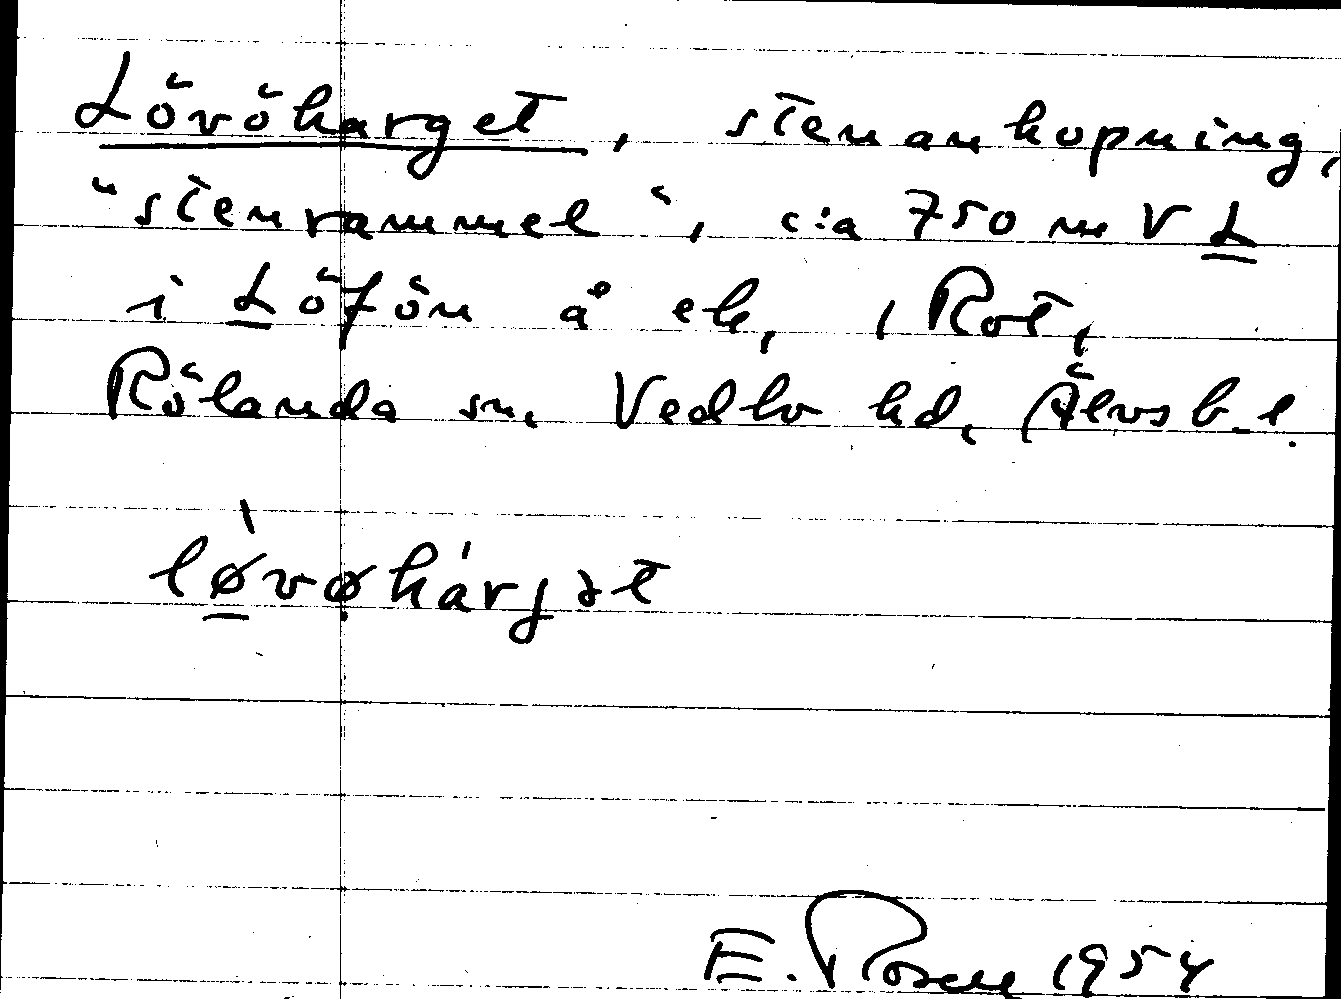 Lövöharget, stenanhopning,
"stenrammel", c:a 750 m V L
i Löfön å ek, i Rot,
Rölanda sn, Vedbo hd, Älvsb. l.
løvøhàrjət
E. Rosell 1954